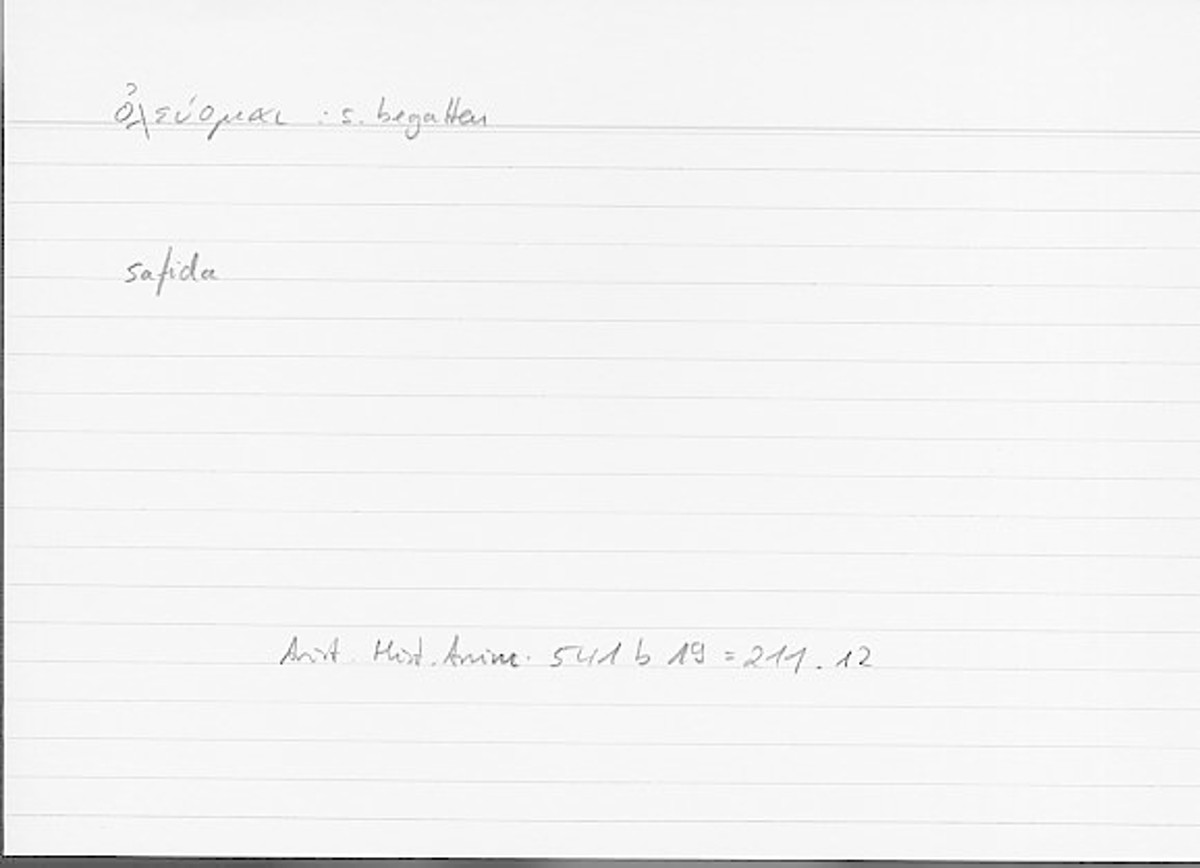 ὀλεύομαι : s. begatten
safida
Arist. Hist. Anim. 541 b 19 = 211.12